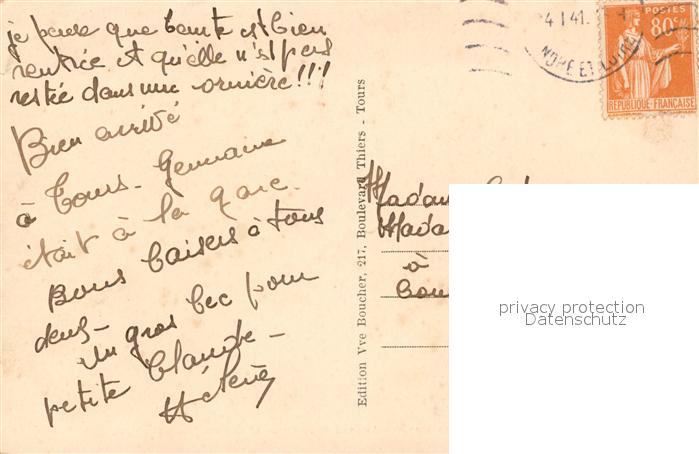 je pense que tante est bien
rentrée et qu'elle n'est pas
restée dans une ornière !!!
Bien arrivé
à Tours - Germaine
était à la gare.
Bons baisers à tous
deux -
Un gros bec pour
petite Claude -
Hélène
Edition Vve Boucher, 217, Boulevard Thiers - Tours
4 1 41
INDRE ET LOIRE
POSTES
80c
RÉPUBLIQUE FRANÇAISE
Madame
Mada
à
privacy protection
Datenschutz